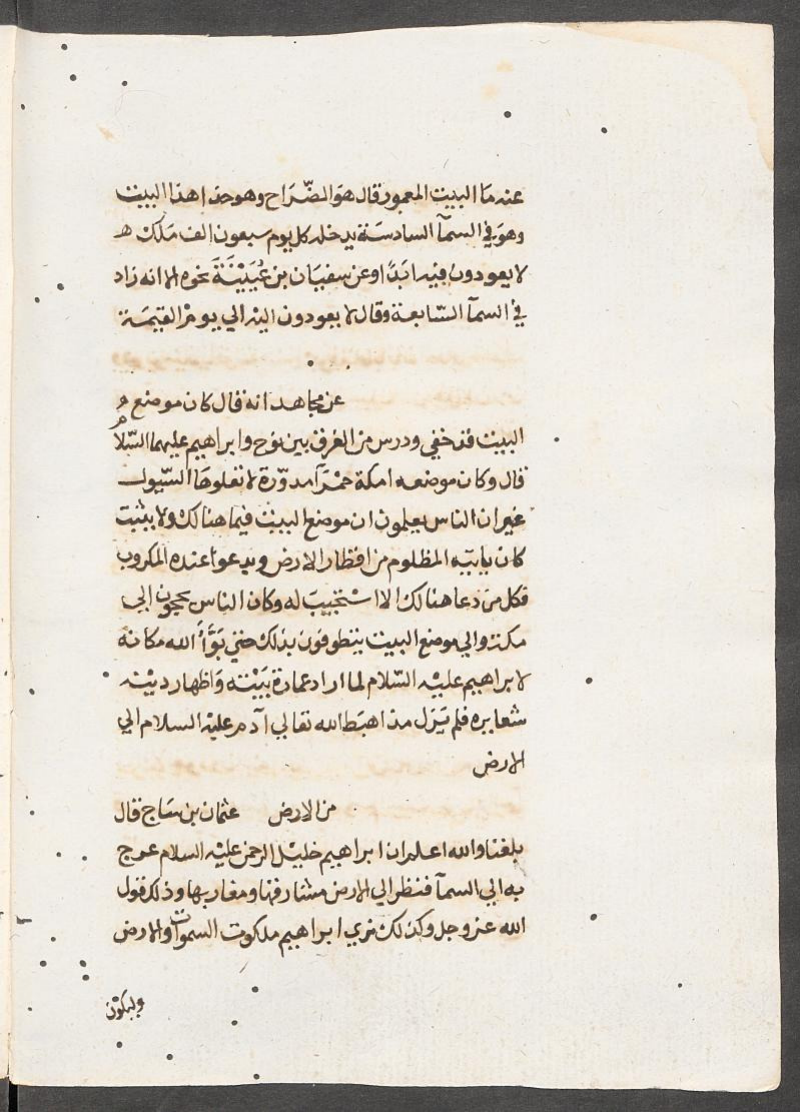 عنه مَا البيت المعمور قال هوَ الضّرَاح وهو حذا هذا البيت
وهوَ في السمآ السادسَة يدخله كل يوم سبعون الف مَلَك
لا يعودون فيه ابَدًا وعن سفيَان بن عُيَيْنَة نحوه الا انه زاد
في السمآ السّابعة وقال لا يعودون اليه الي يومْ القيٰمَة
عن مجاهد انه قال كان موضع
البيت قد خفي ودرس من الغرق بين نوح وابراهيم عليهما السّلامُ
قال وكان موضعه امكة حمرَآ مدوّرة لا تعلوهَا السّيول
غير ان الناس يعلمون ان موضع البيت فيما هنالك ولا يثبت
كان يابيَه المظلوم من اقطار الارض ويدعوا عنده المكروب
فكل من دعا هنالك الا استُجيبَ له وكان الناس يحجون الي
مكة والي موضع البيت يتطوفون بذلك حتي بَوَّأَ الله مكانه
لابراهيم عليْه السّلام لما اراد عمارة بَيْته وَاظهار ديْنه
شعايره فلم يَزل مذ اهبَط الله تعالي آدم عليْه السلام الي
الارض
من الارض عثمان بن سَاج قال
بلغنا والله اعلم ان ابراهيم خليْل الرحمن عليْه السلام عرج
به الي السمآ فنظر الي الارض مشارقها ومغاربها وذلك قول
الله عز وجل وكذلك نري ابراهيم ملكوت السموات والارض
وليكون